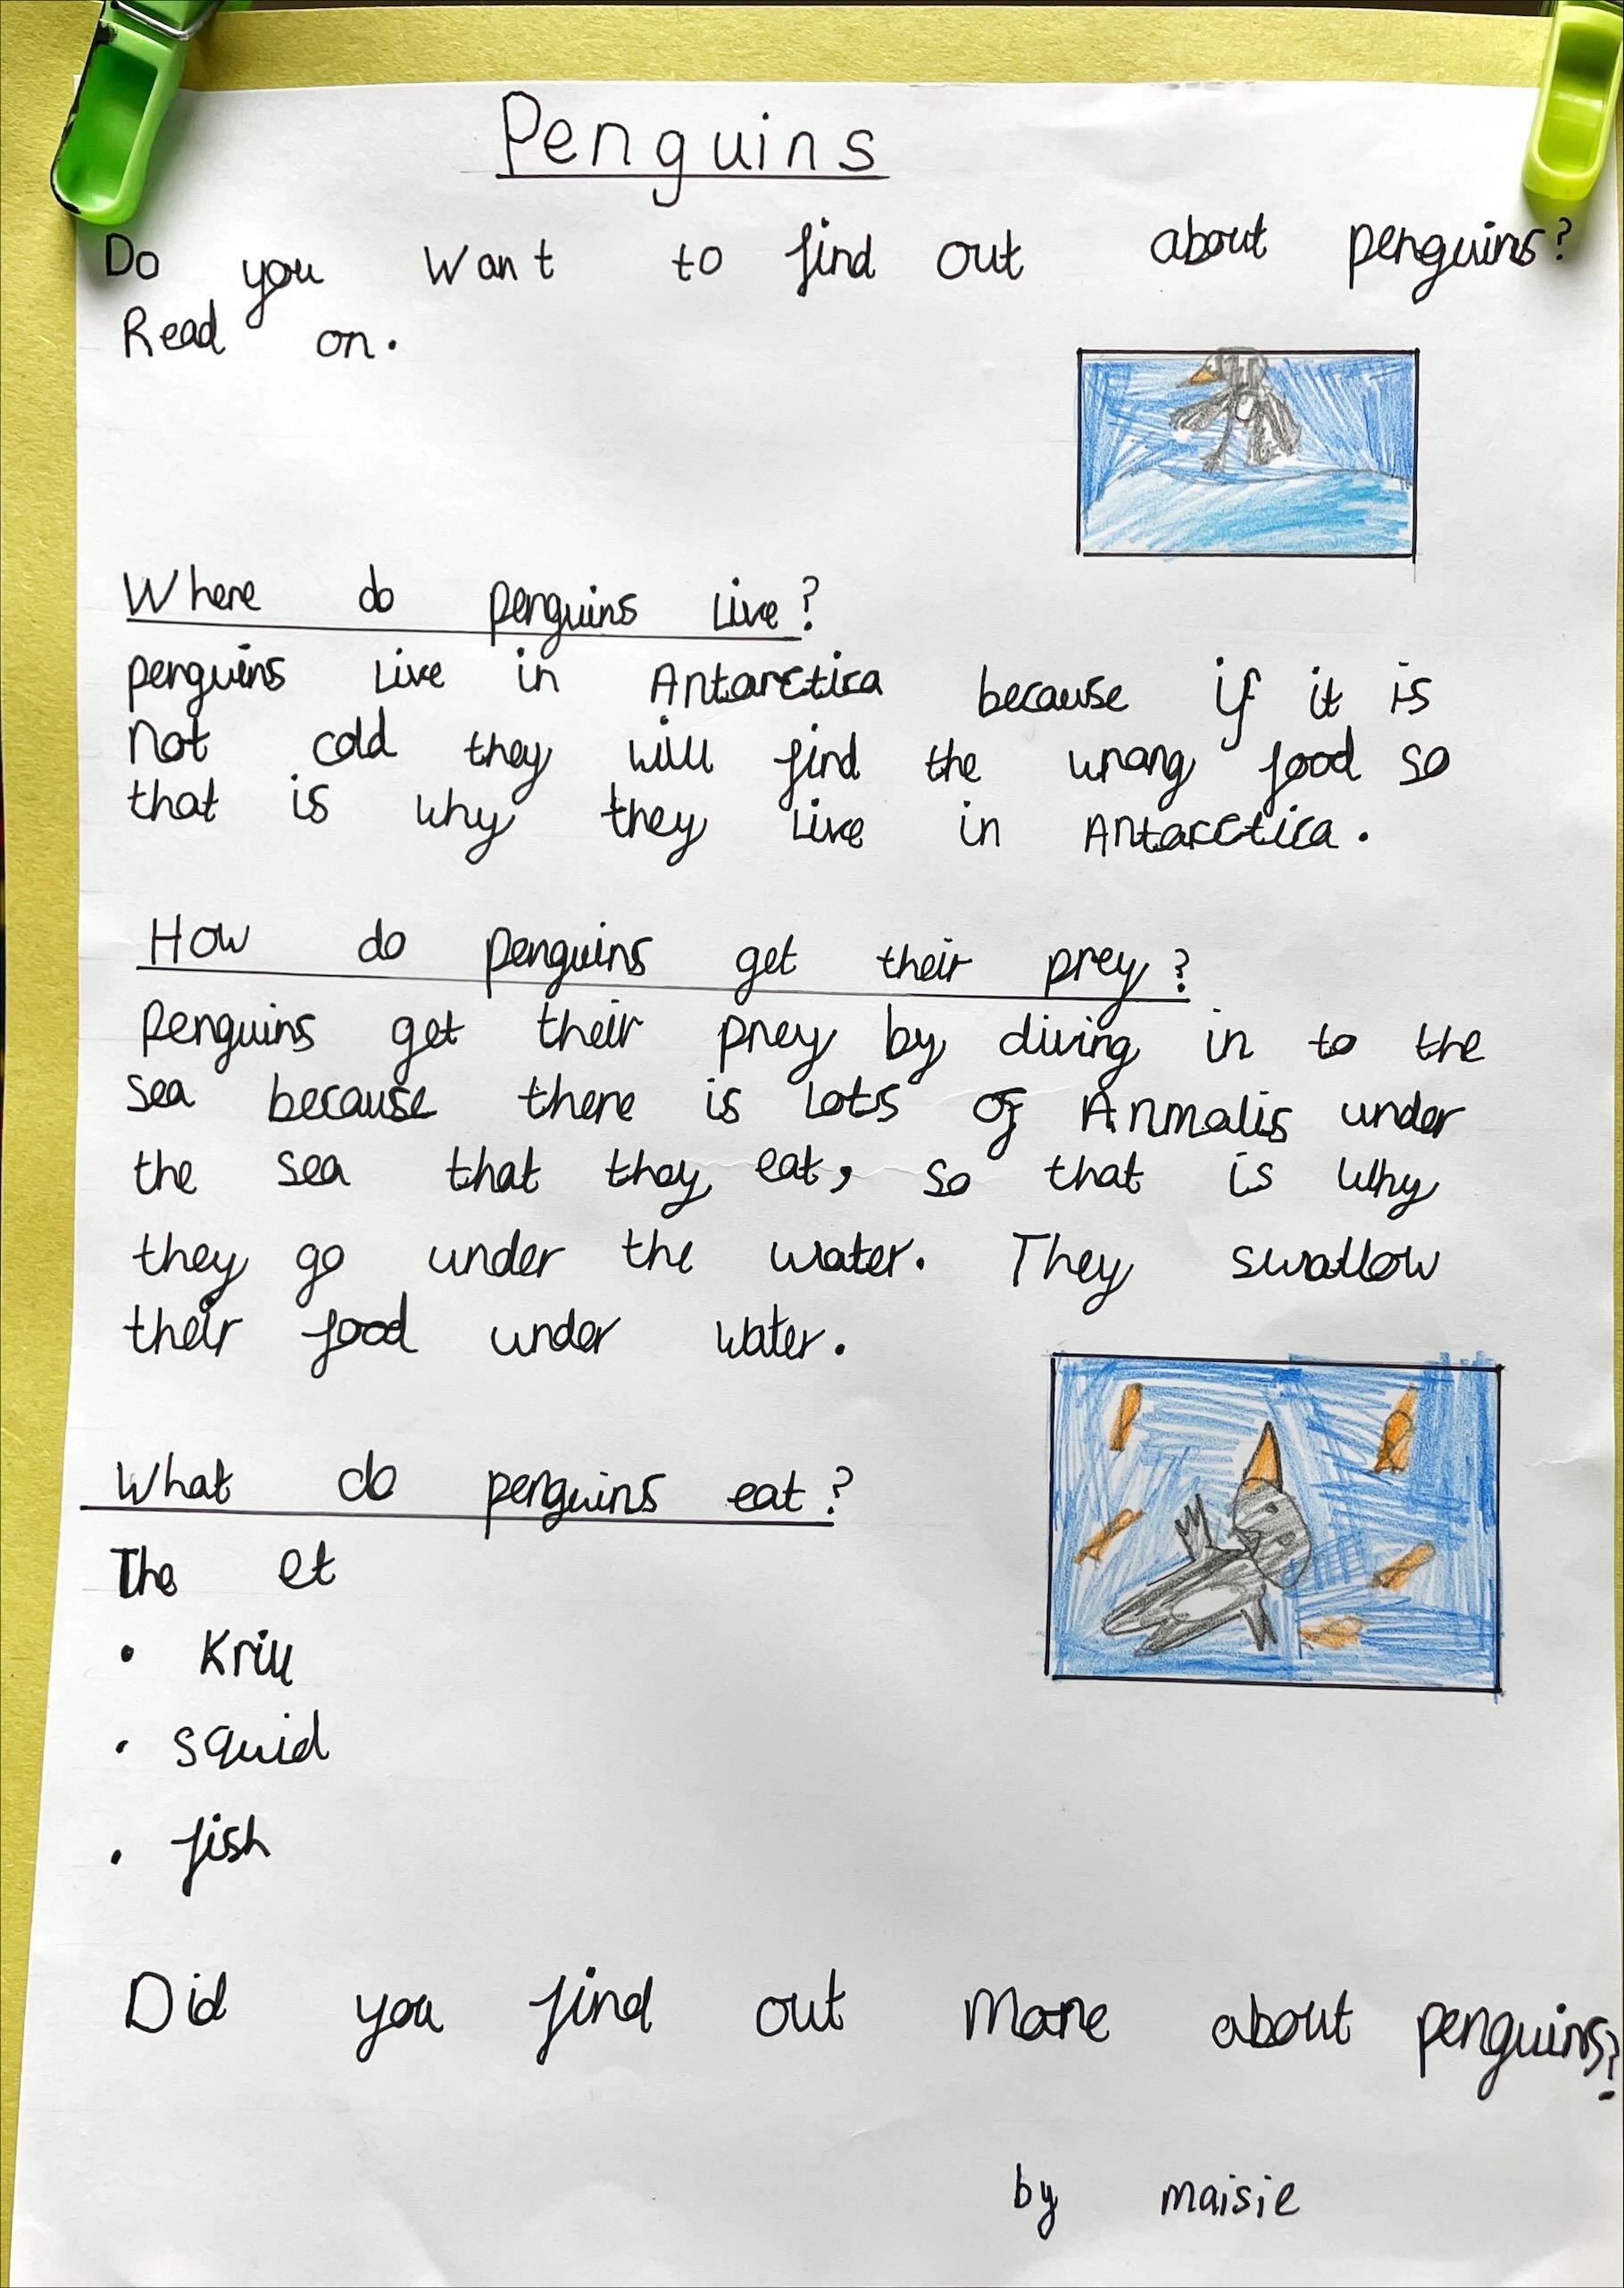 Penguins
Do you want to find out about penguins?
Read on.
Where do penguins Live?
penguins Live in Antarctica because if it is
not cold they will find the wrong food so
that is why they Live in Antarctica.
How do penguins get their prey?
Penguins get their prey by diving in to the
sea because there is Lots of Anmalis under
the sea that they eat, so that is why
they go under the water. They swallow
their food under water.
What do penguins eat?
The et
• Krill
• squid
• fish
Did you find out More about penguins?
by maisie